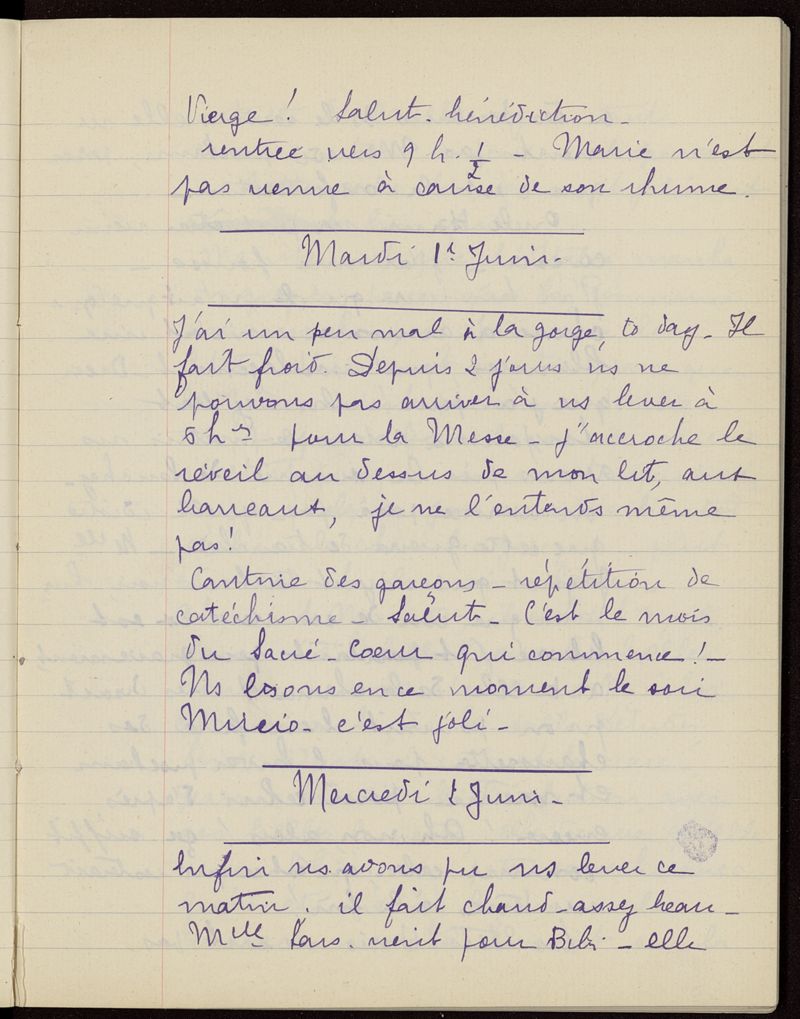 Vierge! Salut. bénédiction.
rentrée vers 9 h. 1/2 - Marie n'est
pas venue à cause de son rhume.
Mardi 1r Juin.
J'ai un peu mal à la gorge, to day. Il
fait froid. Depuis 2 jours ns ne
pouvons pas arriver à ns lever à
5 hres pour la Messe - j'accroche le
réveil au dessus de mon lit, aux
barreaux, je ne l'entends même
pas!
Cantine des garçons - répétition de
catéchisme - Salut - C'est le mois
du Sacré-Coeur qui commence! -
Ns lisons en ce moment le soir
c'est joli -
Mercredi 2 Juin -
Enfin ns avons pu ns lever ce
matin. il fait chaud - assez beau -
Mlle vient pour Bébé - elle